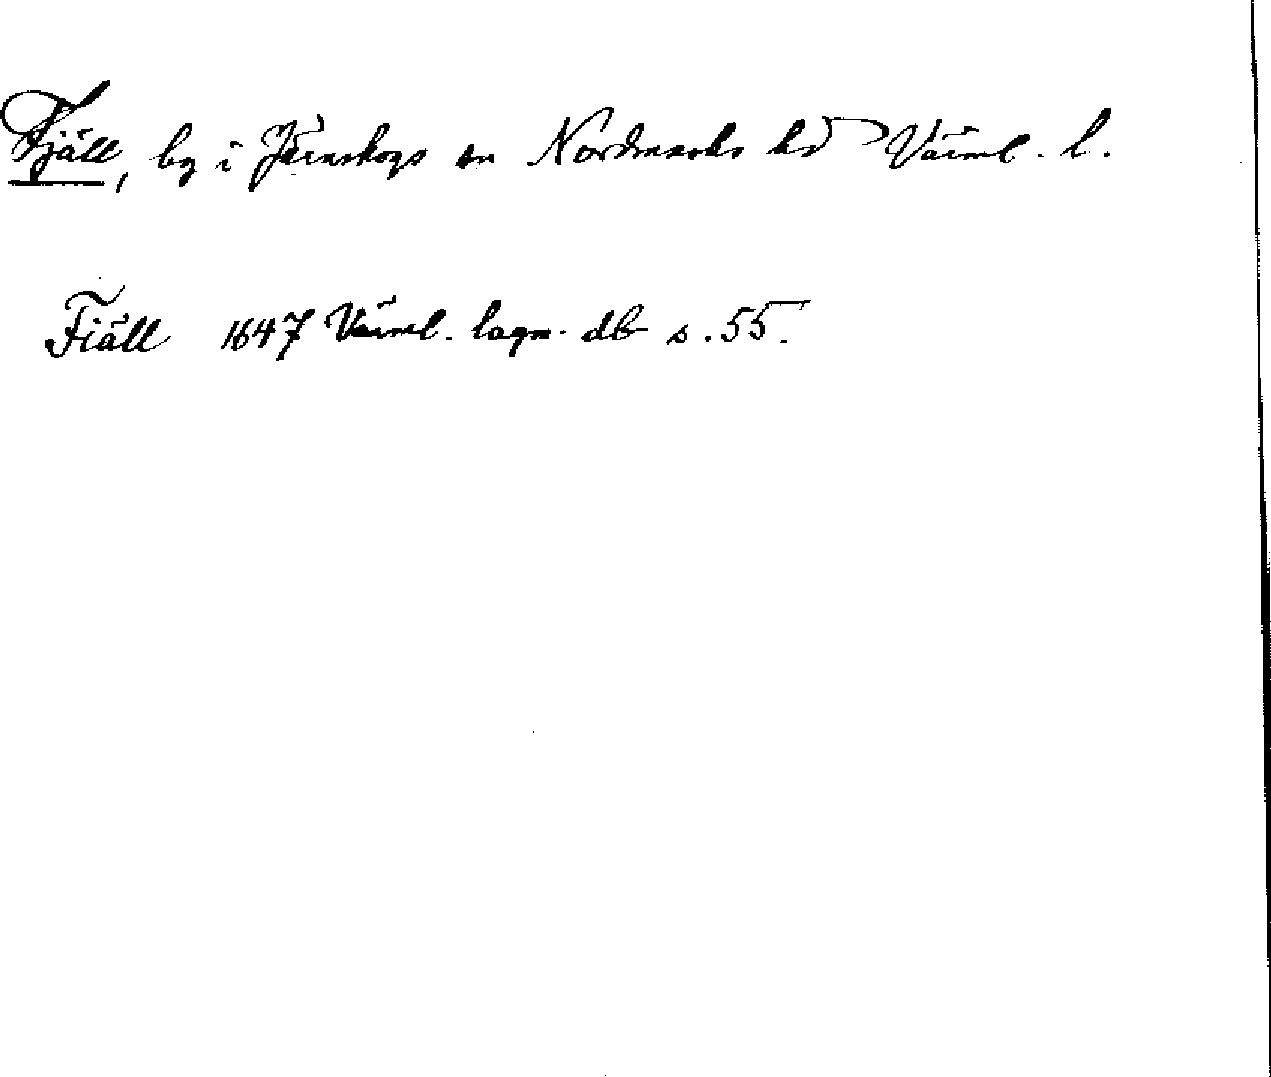 Fjäll, by i Järnskogs sn Nordmarks hd Värml. l.
Fiäll 1647 Värml. lagm. db s. 55.